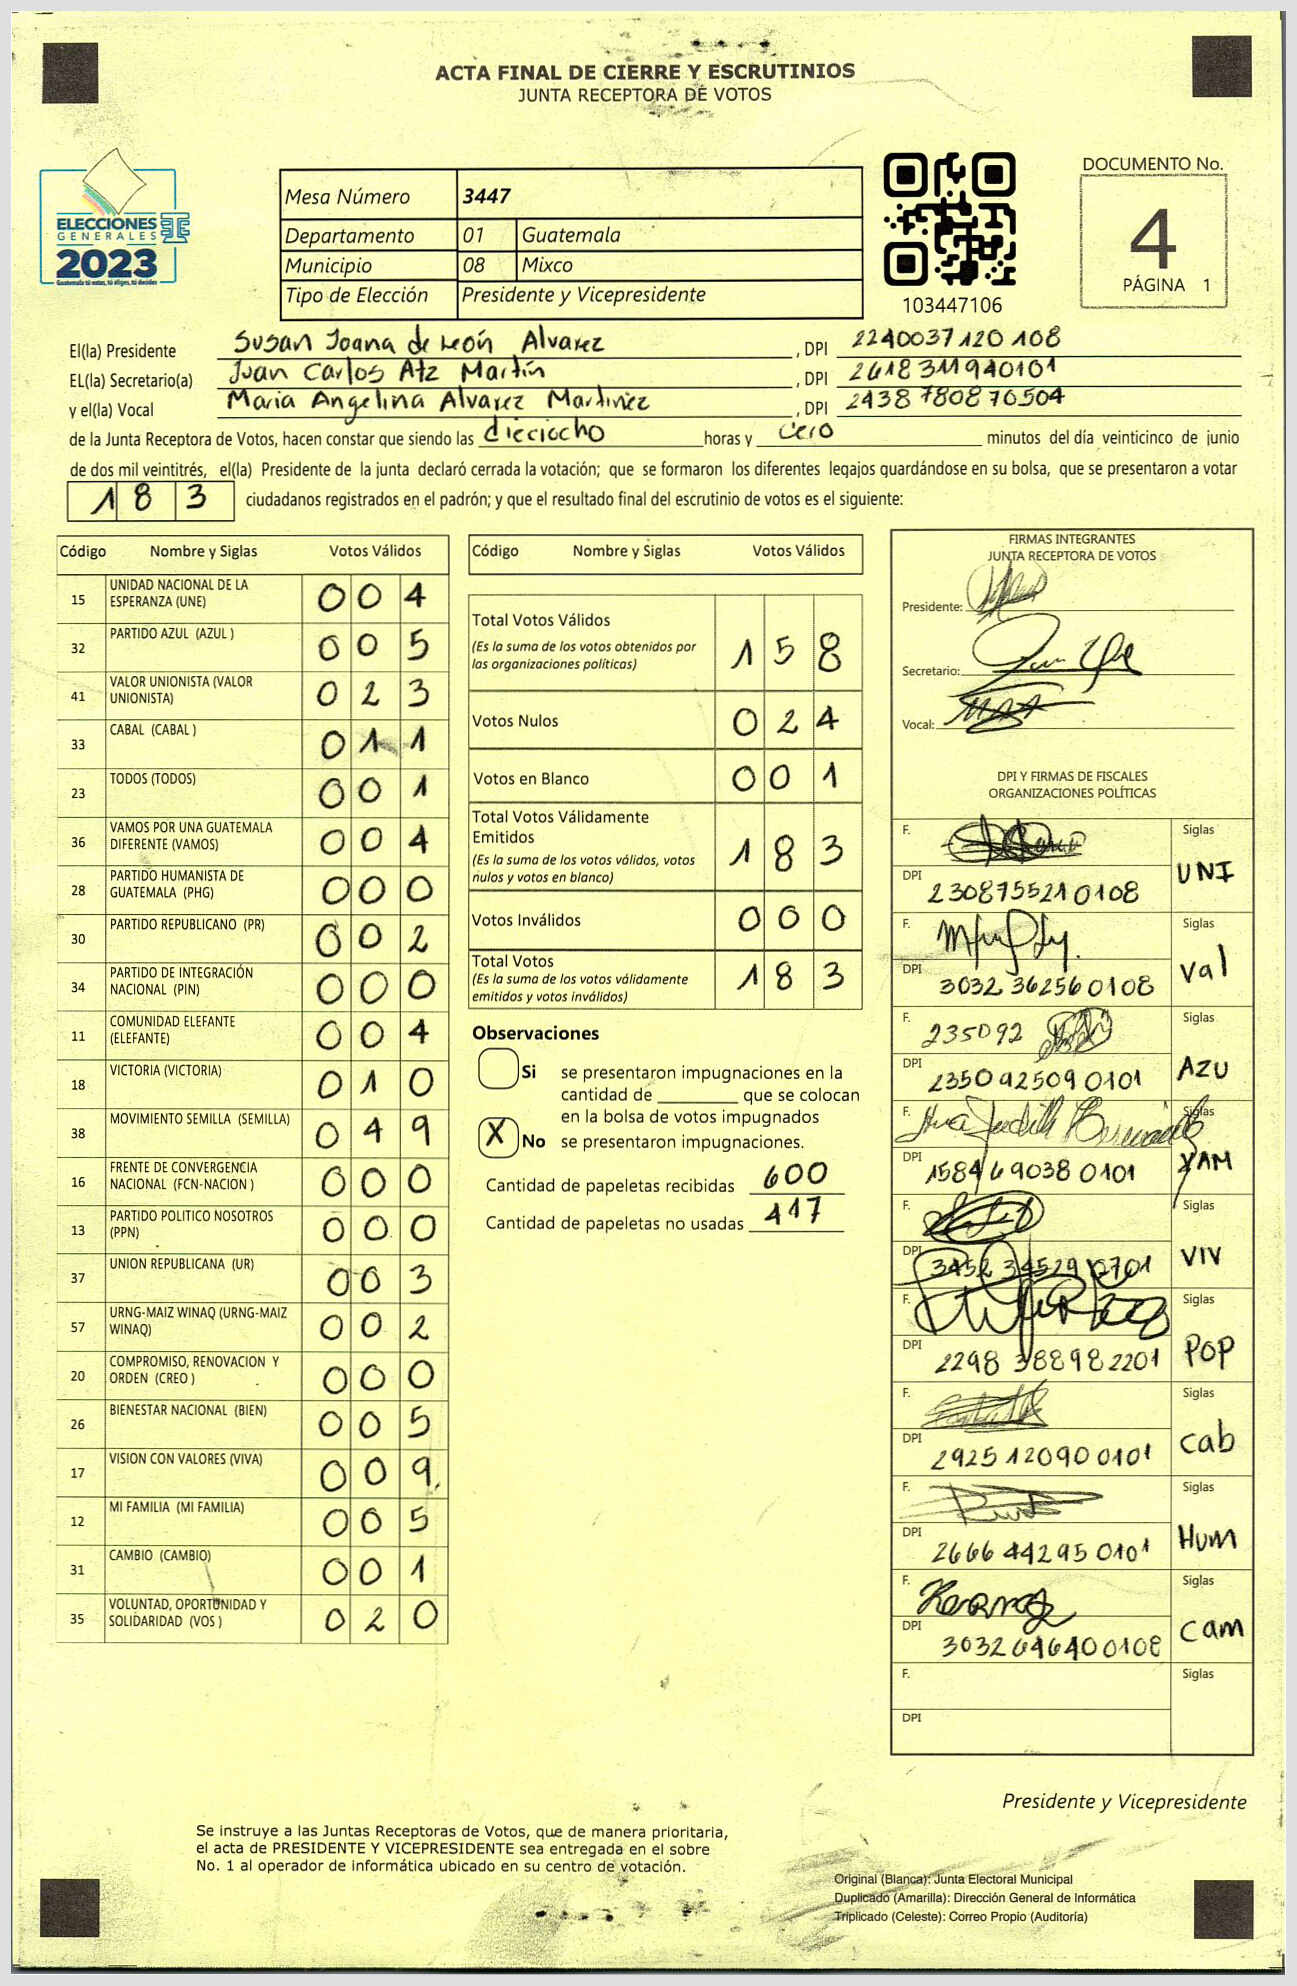 ACTA FINAL DE CIERRE Y ESCRUTINIOS
JUNTA RECEPTORA DE VOTOS
ELECCIONES
GENERALES
2023
Guatemala tú votas, tú eliges, tú decides
Mesa Número 3447
Departamento 01 Guatemala
Municipio 08 Mixco
Tipo de Elección Presidente y Vicepresidente
103447106
DOCUMENTO No.
4
PÁGINA 1
El(la) Presidente Susan Joana de León Alvarez , DPI 2240037120108
EL(la) Secretario(a) Juan Carlos Atz Martín , DPI 2618311940101
y el(la) Vocal Maria Angelina Alvarez Martinez , DPI 2438780870504
de la Junta Receptora de Votos, hacen constar que siendo las dieciocho horas y cero minutos del día veinticinco de junio
de dos mil veintitrés, el(la) Presidente de la junta declaró cerrada la votación; que se formaron los diferentes legajos guardándose en su bolsa, que se presentaron a votar
183 ciudadanos registrados en el padrón; y que el resultado final del escrutinio de votos es el siguiente:
Código Nombre y Siglas Votos Válidos
15 UNIDAD NACIONAL DE LA ESPERANZA (UNE) 004
32 PARTIDO AZUL (AZUL ) 005
41 VALOR UNIONISTA (VALOR UNIONISTA) 023
33 CABAL (CABAL ) 011
23 TODOS (TODOS) 001
36 VAMOS POR UNA GUATEMALA DIFERENTE (VAMOS) 004
28 PARTIDO HUMANISTA DE GUATEMALA (PHG) 000
30 PARTIDO REPUBLICANO (PR) 002
34 PARTIDO DE INTEGRACIÓN NACIONAL (PIN) 000
11 COMUNIDAD ELEFANTE (ELEFANTE) 004
18 VICTORIA (VICTORIA) 010
38 MOVIMIENTO SEMILLA (SEMILLA) 049
16 FRENTE DE CONVERGENCIA NACIONAL (FCN-NACION ) 000
13 PARTIDO POLITICO NOSOTROS (PPN) 000
37 UNION REPUBLICANA (UR) 003
57 URNG-MAIZ WINAQ (URNG-MAIZ WINAQ) 002
20 COMPROMISO, RENOVACION Y ORDEN (CREO ) 000
26 BIENESTAR NACIONAL (BIEN) 005
17 VISION CON VALORES (VIVA) 009
12 MI FAMILIA (MI FAMILIA) 005
31 CAMBIO (CAMBIO) 001
35 VOLUNTAD, OPORTUNIDAD Y SOLIDARIDAD (VOS ) 020
Código Nombre y Siglas Votos Válidos
Total Votos Válidos 158
(Es la suma de los votos obtenidos por
las organizaciones políticas)
Votos Nulos 024
Votos en Blanco 001
Total Votos Válidamente
Emitidos 183
(Es la suma de los votos válidos, votos
nulos y votos en blanco)
Votos Inválidos 000
Total Votos 183
(Es la suma de los votos válidamente
emitidos y votos inválidos)
Observaciones
Si se presentaron impugnaciones en la
cantidad de ________ que se colocan
en la bolsa de votos impugnados
X No se presentaron impugnaciones.
Cantidad de papeletas recibidas 600
Cantidad de papeletas no usadas 417
FIRMAS INTEGRANTES
JUNTA RECEPTORA DE VOTOS
Presidente:
Secretario:
Vocal:
DPI Y FIRMAS DE FISCALES
ORGANIZACIONES POLÍTICAS
F. Siglas
DPI 2308755210108 UNI
F. Siglas
DPI 3032362560108 Val
F. 235092 Siglas
DPI 2350925090101 AZU
F. Siglas
DPI 1584690380101 VAM
F. Siglas
DPI 3452345290701 VIV
F. Siglas
DPI 2298388982201 POP
F. Siglas
DPI 2925120900101 cab
F. Siglas
DPI 2666442950101 Hum
F. Siglas
DPI 3032646400108 Cam
F. Siglas
DPI
Presidente y Vicepresidente
Se instruye a las Juntas Receptoras de Votos, que de manera prioritaria,
el acta de PRESIDENTE Y VICEPRESIDENTE sea entregada en el sobre
No. 1 al operador de informática ubicado en su centro de votación.
Original (Blanca): Junta Electoral Municipal
Duplicado (Amarilla): Dirección General de Informática
Triplicado (Celeste): Correo Propio (Auditoría)